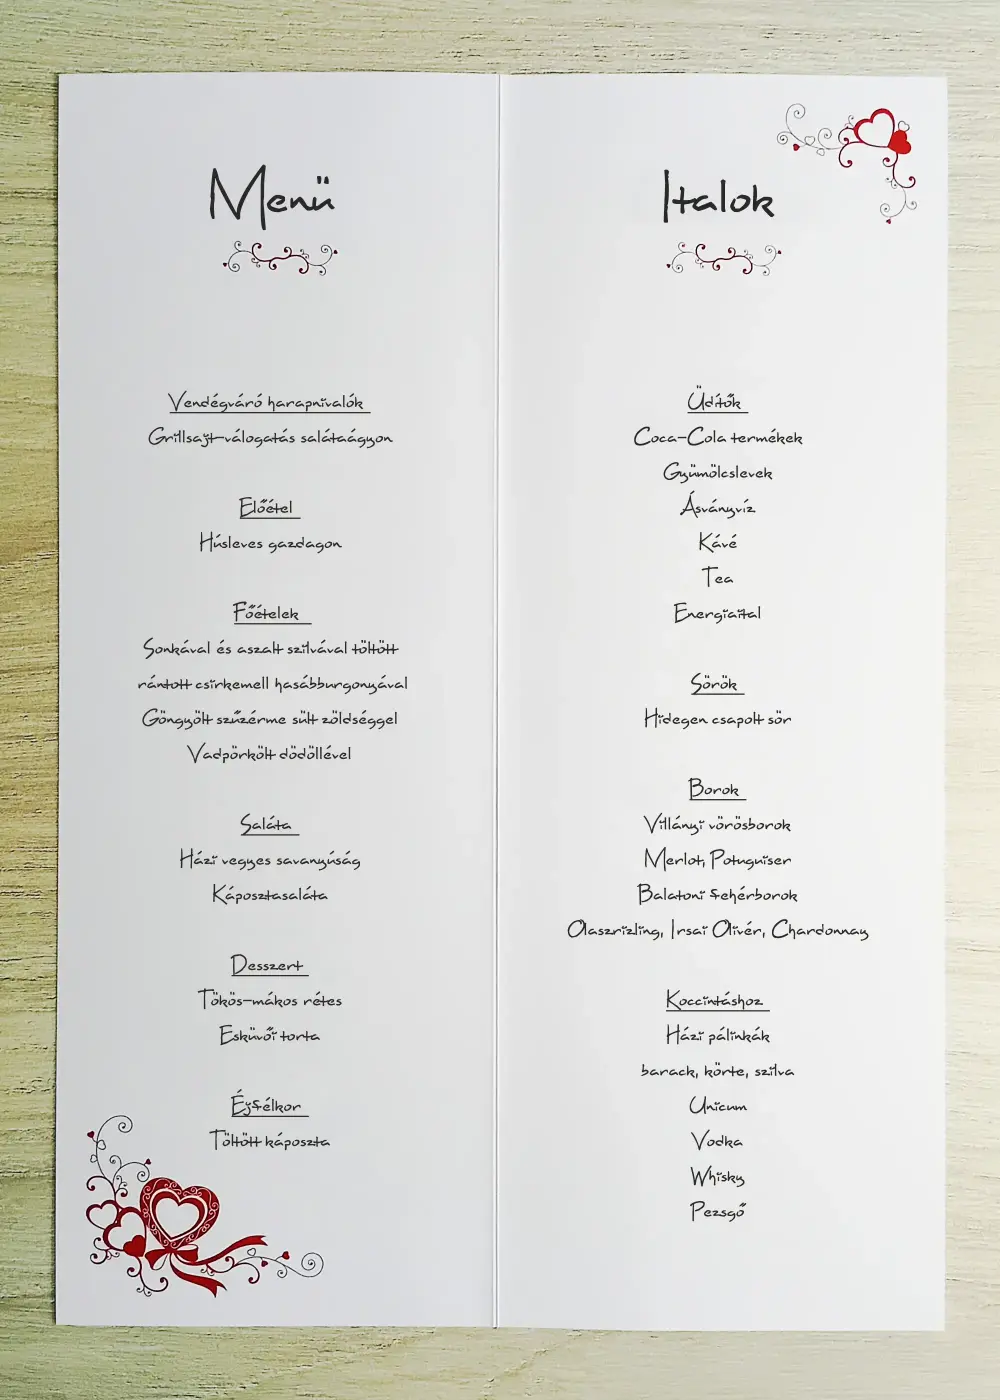 Menü
Vendégváró harapnivalók
Grillsajt-válogatás salátaágyon
Előétel
Húsleves gazdagon
Főételek
Sonkával és aszalt szilvával töltött
rántott csirkemell hasábburgonyával
Göngyölt szűzérme sült zöldséggel
Vadpörkölt dödöllével
Saláta
Házi vegyes savanyúság
Káposztasaláta
Desszert
Tökös-mákos rétes
Esküvői torta
Éjfélkor
Töltött káposzta
Italok
Üdítők
Coca-Cola termékek
Gyümölcslevek
Ásványvíz
Kávé
Tea
Energiaital
Sörök
Hidegen csapolt sör
Borok
Villányi vörösborok
Merlot, Potuguiser
Balatoni fehérborok
Olaszrizling, Irsai Olivér, Chardonnay
Koccintáshoz
Házi pálinkák
barack, körte, szilva
Unicum
Vodka
Whisky
Pezsgő